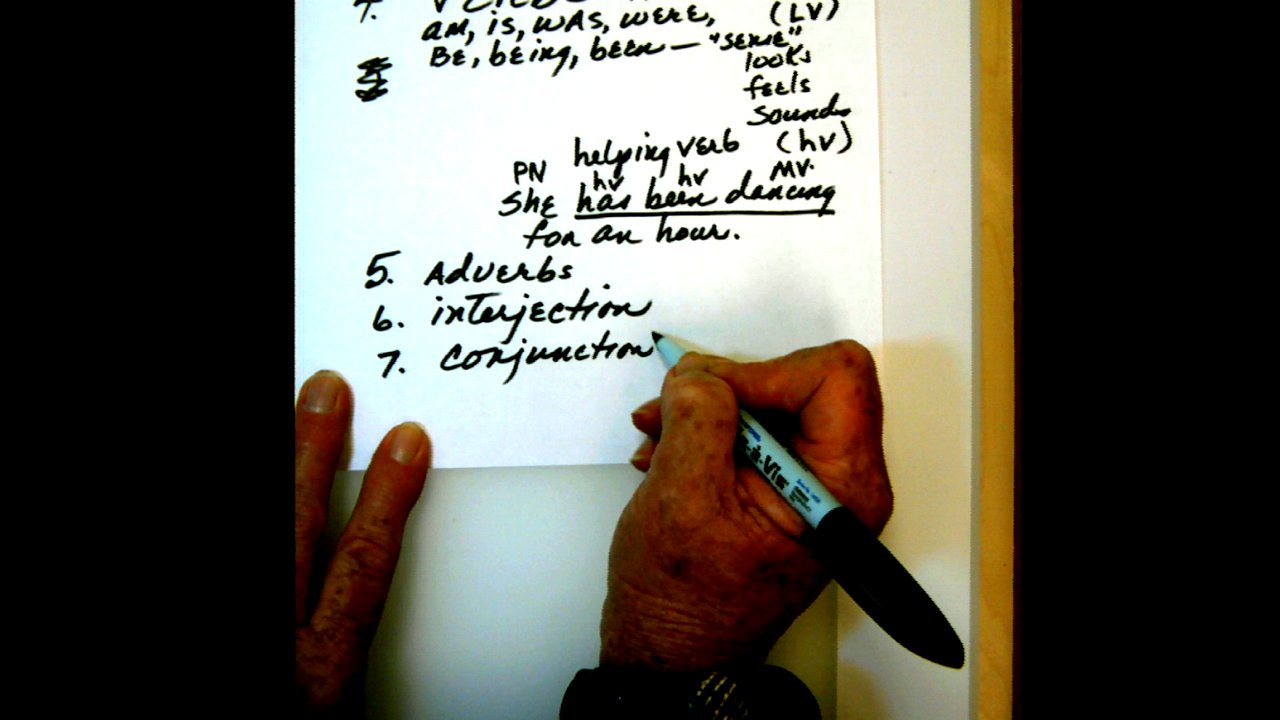 4. VERBS
am, is, was, were, (LV)
BE, being, been — "sense"
looks
feels
sounds
helping verb (hv)
PN hv hv MV.
She has been dancing
for an hour.
5. Adverbs
6. interjection
7. conjunction
à-Vis